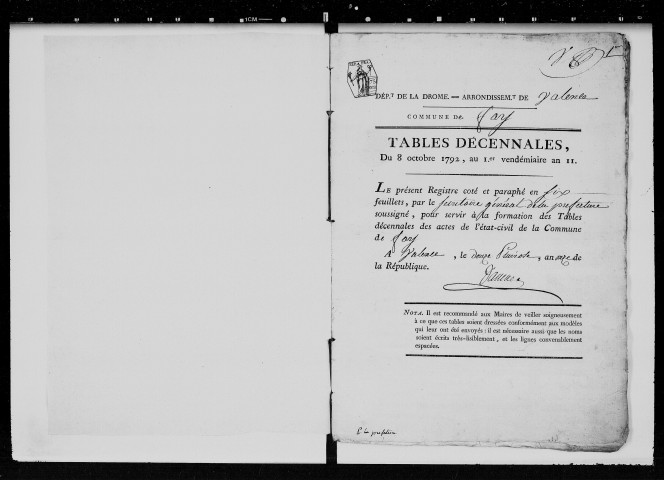 1CM
DÉP.T DE LA DROME. — ARRONDISSEM.T DE Valence
COMMUNE DE fay
TABLES DÉCENNALES,
Du 8 octobre 1792, au 1.er vendémiaire an 11.
LE présent Registre coté et paraphé en six
feuillets, par le secrétaire général de la préfecture
soussigné, pour servir à la formation des Tables
décennales des actes de l'état-civil de la Commune
de fay
A Valence, le douze Pluviose, an onze de
la République.
NOTA. Il est recommandé aux Maires de veiller soigneusement
à ce que ces tables soient dressées conformément aux modèles
qui leur ont été envoyés : il est nécessaire aussi que les noms
soient écrits très-lisiblement, et les lignes convenablement
espacées.